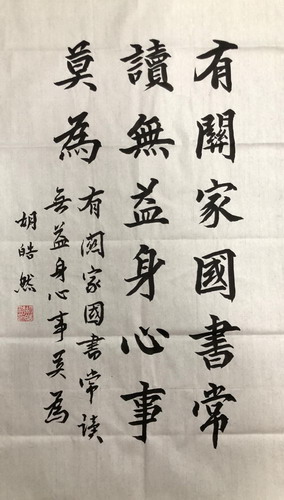 有關家國書常
讀無益身心事
莫為
有関家國書常读
無益身心事莫為
胡皓然